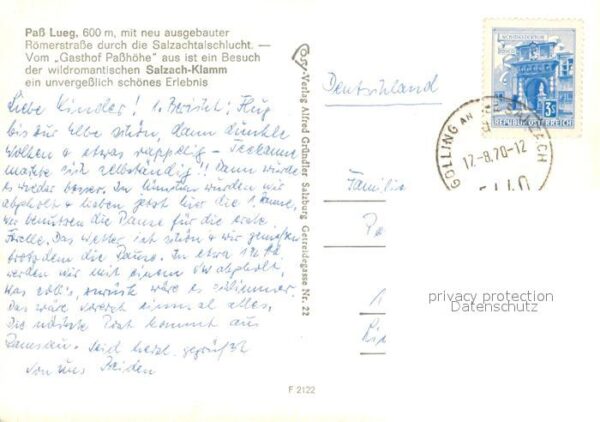 Paß Lueg, 600 m, mit neu ausgebauter
Römerstraße durch die Salzachtalschlucht. —
Vom „Gasthof Paßhöhe" aus ist ein Besuch
der wildromantischen Salzach-Klamm
ein unvergeßlich schönes Erlebnis
Liebe Kinder! 1. Bericht: Flug
bis zur Elbe schön, dann dunkle
Wolken & etwas rappelig – Teekanne
machte sich selbständig!! Dann wurde
es wieder besser. In München wurden wir
abgeholt & haben jetzt hier die 1. Pause.
wir benutzen die Pause für die erste
Forelle. Das Wetter ist schön & wir genießen
trotzdem die Pause. In etwa
werden wir mit einem VW abgeholt,
was soll's, zurück wäre es schlimmer.
Das wäre vorerst einmal alles.
Die nächste Post kommt aus
Ramsau. Seid herzl. gegrüßt
von uns Beiden
Cosy-Verlag Alfred Gründler Salzburg Getreidegasse Nr. 22
F 2122
Deutschland
Familie
REPUBLIK ÖSTERREICH
GOLLING AN DER SALZACH
17.-8.70-12
5440
privacy protection
Datenschutz